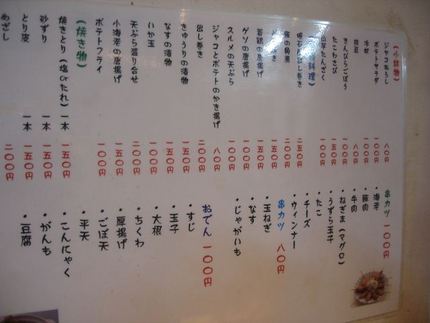 【小鉢物】
ジャコおろし 八〇円
ポテトサラダ 一〇〇円
冷奴 一〇〇円
枝豆
きんぴらごぼう 一〇〇円
たこわさび 一五〇円
山芋たんざく
明石
豚の角煮 二〇〇円
若鶏の唐揚げ 一五〇円
ゲソの唐揚げ 一〇〇円
スルメの天ぷら 一〇〇円
ジャコとポテトのかき揚げ 八〇円
出し巻き 二〇〇円
きゅうりの漬物 一五〇円
なすの漬物 一五〇円
いか玉
天ぷら盛り合せ 二〇〇円
小海老の唐揚げ 一五〇円
ポテトフライ 一〇〇円
【焼き物】
焼きとり(塩orたれ) 一本 一五〇円
砂ずり 一本 一五〇円
とり皮 一本 一五〇円
めざし 二〇〇円
串カツ 一〇〇円
・海老
・豚肉
・牛肉
・ねぎま(マグロ)
・うずら玉子
・たこ
・チーズ
・ウィンナー
串カツ 八〇円
・玉ねぎ
・なす
・じゃがいも
おでん 一〇〇円
・すじ
・玉子
・大根
・ちくわ
・厚揚げ
・ごぼ天
・平天
・こんにゃく
・がんも
・豆腐